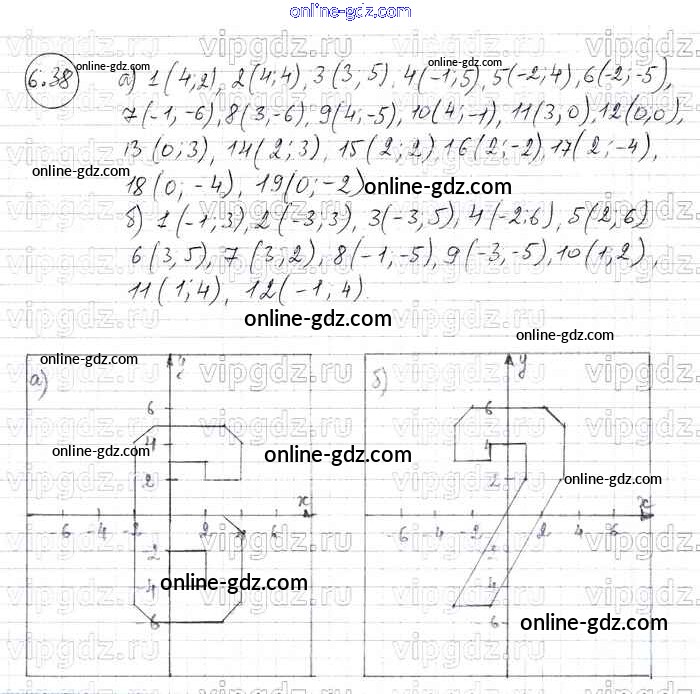 online-gdz.com
6.38 а) 1 (4;2), 2(4;4), 3 (3; 5), 4(-1;5), 5(-2;4), 6(-2;-5),
7(-1, -6), 8(3,-6), 9(4;-5), 10(4;-1), 11(3,0), 12(0;0),
13 (0;3), 14(2;3), 15(2;2), 16(2;-2), 17(2;-4),
18(0; -4), 19(0;-2)
б) 1(-1;3), 2(-3;3), 3(-3,5), 4(-2;6), 5(2;6)
6(3,5), 7 (3;2), 8(-1;-5), 9(-3,-5), 10(1,2),
11(1;4), 12(-1;4).
online-gdz.com
online-gdz.com
online-gdz.com
online-gdz.com
online-gdz.com
online-gdz.com
а) y
6
4
2
-6 -4 -2 2 4 6 x
-2
-4
-6
б) y
6
4
2
-6 -4 -2 2 4 6 x
-2
-4
-6
online-gdz.com
online-gdz.com
online-gdz.com
online-gdz.com
online-gdz.com
vipgdz.ru